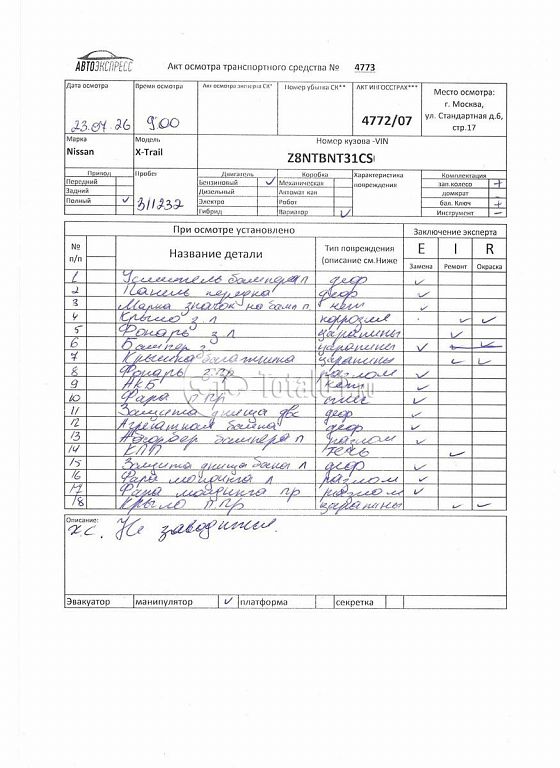 АВТОЭКСПРЕСС
Акт осмотра транспортного средства № 4773
Дата осмотра Время осмотра Акт осмотра эксперта СК* Номер убытка СК** АКТ ИНГОССТРАХ*** Место осмотра:
г. Москва,
23.07.26 9:00 4772/07 ул. Стандартная д.6,
стр.17
Марка Модель Номер кузова -VIN
Nissan X-Trail Z8NTBNT31CS
Привод Пробег Двигатель Коробка Характеристика повреждения Комплектация
Передний Бензиновый ✓ Механическая зап.колесо +
Задний Дизельный Автомат кая домкрат
Полный ✓ 311232 Электро Робот бал. Ключ +
Гибрид Вариатор ✓ Инструмент −
При осмотре установлено Заключение эксперта
№ п/п Название детали Тип повреждения (описание см.Ниже E I R
Замена Ремонт Окраска
1 Усилитель бампера п деф ✓
2 Панель передка деф ✓
3 Марка значок на бамп п нет ✓
4 Крыло з л коррозия ✓ ✓
5 Фонарь з л царапины ✓
6 Бампер з царапины ✓
7 Крышка багажника царапины ✓ ✓
8 Фонарь з пр разлом ✓
9 АКБ ✓
10 Фара п пр ✓
11 Защита днища двс деф ✓
12 деф ✓
13 Абсорбер бампера п разлом ✓
14 КПП течь ✓
15 Защита днища п деф ✓
16 Фара л разлом ✓
17 Фара пр разлом ✓
18 Крыло п пр царапины ✓ ✓
Описание:
х.с. Не заводится.
Эвакуатор манипулятор ✓ платформа секретка
Totalcar.ru